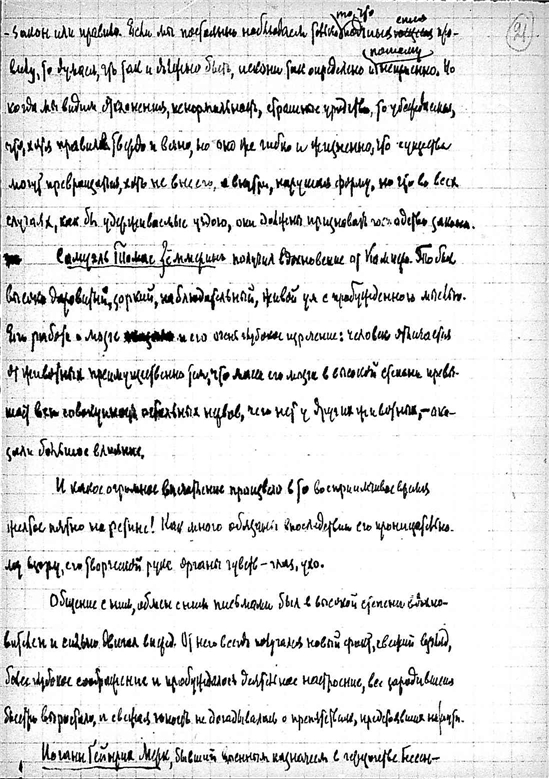 21
- закон или правило. Если мы постоянно наблюдаем только то, что подчинено пра-
вилу, то думаем, что так и должно быть, искони так определено и потому неизменно. Но
когда мы видим отклонения, ненормальность, страшное уродство, то убеждаемся,
что, хотя правила твердо и вечно, но оно же гибко и жизненно, что существа
могут превращаться, хоть не вне его, а внутри, нарушая форму, но что во всех
случаях, как бы удерживаемые уздою, они должны признавать господство закона.
Самуэль Томас Зёммеринг получил вдохновение от Кампера. То был
высоко даровитый, зоркий, наблюдательный, живой ум с пробужденною мыслью.
Его работа о мозге и его очень глубокое изречение: человек отличается
от животных преимущественно тем, что масса его мозга в высокой степени превы-
шает всю совокупность остальных нервов, чего нет у других животных, - ока-
зали большое влияние.
И какое огромное впечатление произвело в то восприимчивое время
желтое пятно на ретине! Как много обязаны впоследствии его проницательно-
му взору, его творческой руке органы чувств - глаз, ухо.
Общение с ним, обмен с ним письмами был в высокой степени вдохно-
вителен и сильно двигал вперед. От него всегда получался новый факт, свежий взгляд,
более глубокое соображение и пробуждалось деятельное настроение, все зародившееся
быстро вырастало, и свежая юность не догадывалась о препятствиях, предстоявших на пути.
Иоганн Гейнрих Мерк, бывший военным казначеем в герцогстве Гессен-